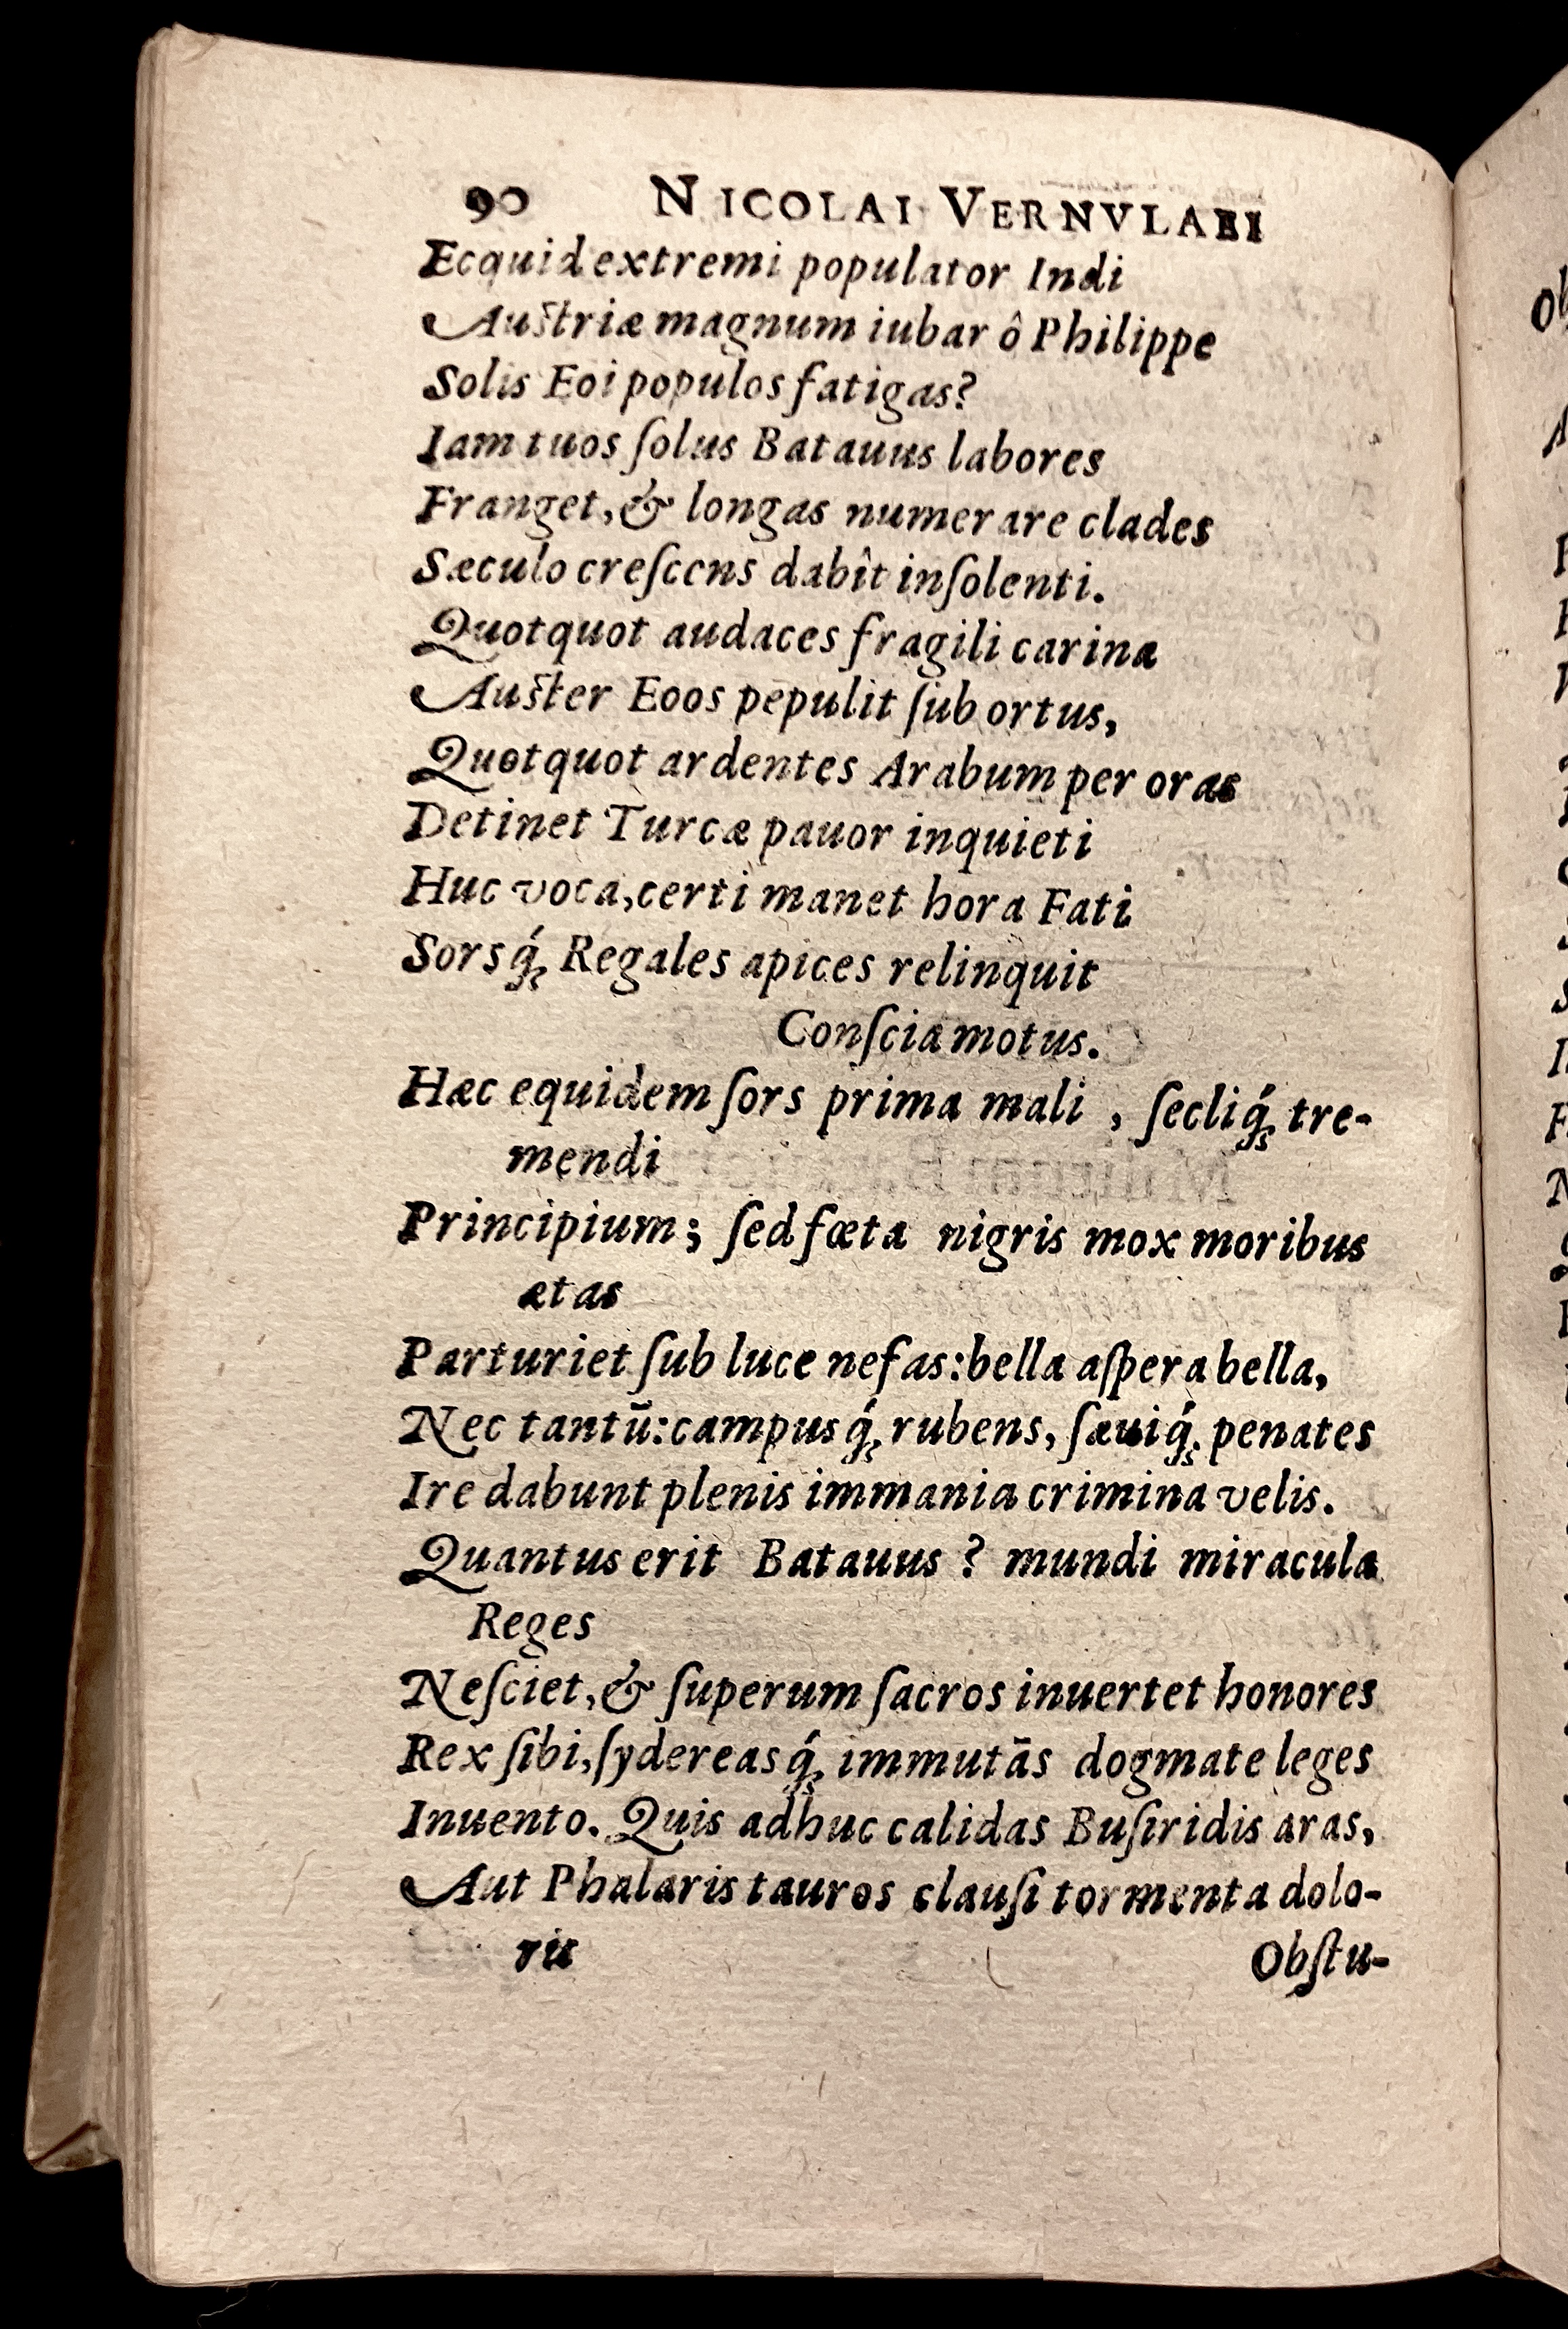 90 NICOLAI VERNVLAEI
Ecquid extremi populator Indi
Auſtriæ magnum iubar ô Philippe
Solis Eoi populos fatigas?
Iam tuos ſolus Batauus labores
Franget, & longas numerare clades
Sæculo creſccns dabit inſolenti.
Quotquot audaces fragili carina
Auſter Eoos pepulit ſub ortus,
Quotquot ardentes Arabum per oras
Detinet Turcæ pauor inquieti
Huc voca, certi manet hora Fati
Sorsq́; Regales apices relinquit
Conſcia motus.
Hæc equidem ſors prima mali, ſecliq́; tre-
mendi
Principium; ſed fœta nigris mox moribus
ætas
Parturiet ſub luce nefas: bella aſpera bella,
Nec tantū: campusq́; rubens, ſæuiq́; penates
Ire dabunt plenis immania crimina velis.
Quantus erit Batauus? mundi miracula
Reges
Neſciet, & ſuperum ſacros inuertet honores
Rex ſibi, ſydereasq́; immutās dogmate leges
Inuento. Quis adhuc calidas Buſiridis aras,
Aut Phalaris tauros clauſi tormenta dolo-
ris Obſtu-